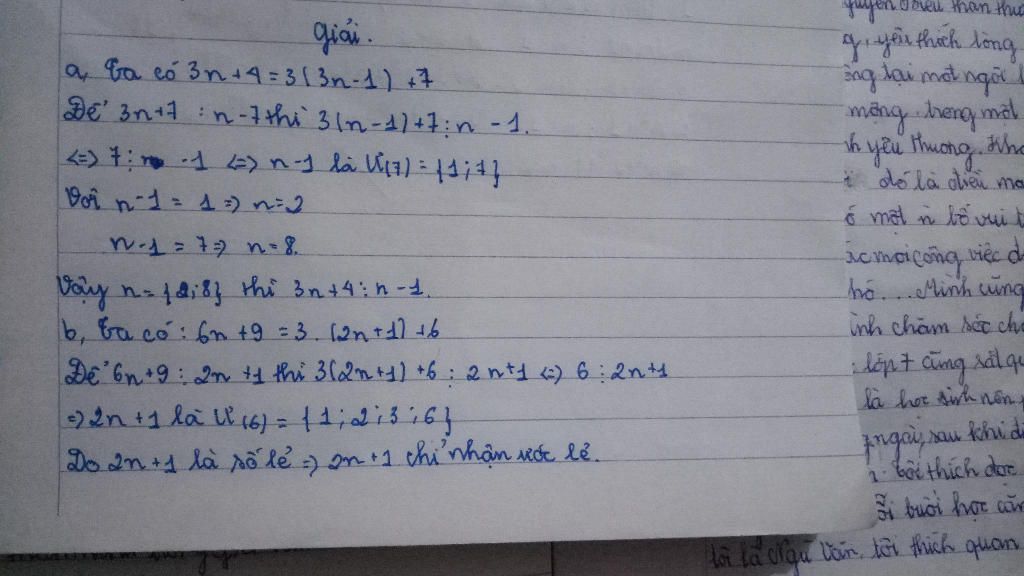 Giải.
a, Ta có 3n+4 = 3(3n-1) +7
Để 3n+7 ⋮ n-7 thì 3(n-1)+7 ⋮ n -1.
<=> 7 ⋮ n -1 <=> n-1 là Ư(7) = {1;7}
Với n-1 = 1 => n=2
n-1 = 7 => n=8.
Vậy n = {2;8} thì 3n+4 ⋮ n-1.
b, Ta có : 6n+9 = 3. (2n+1) +6
Để 6n+9 ⋮ 2n+1 thì 3(2n+1)+6 ⋮ 2n+1 <=> 6 ⋮ 2n+1
=> 2n+1 là Ư(6) = {1;2;3;6}
Do 2n+1 là số lẻ => 2n+1 chỉ nhận ước lẻ.
yêu thích lòng
lại một ngôi
mộng. trong một
yêu thương. Kho
đó là điều
một n bố vui
mọi công việc
... Mình cũng
chăm sóc
lớp 7 cũng rất
là học sinh nên
ngày, sau khi đi
tôi thích đọc
buổi học
tôi là Ngữ Văn. tôi thích quan